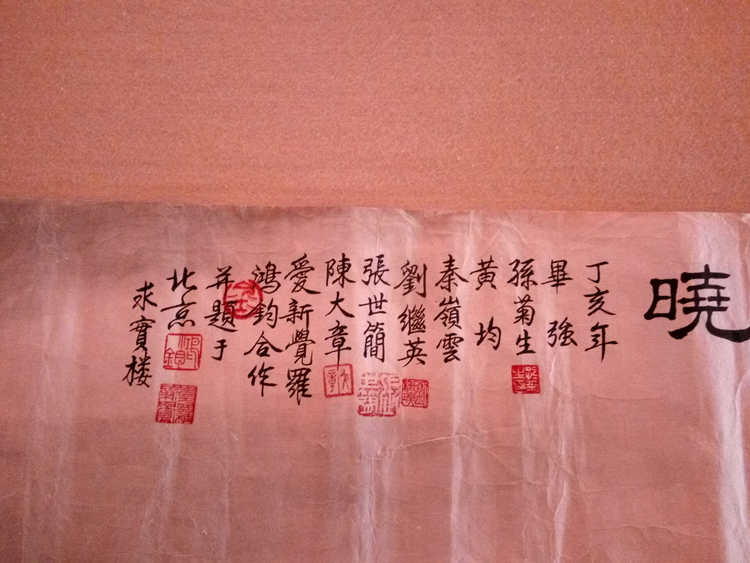 曉
丁亥年
畢強
孫菊生
黃均
秦嶺雲
劉繼英
張世簡
陳大章
愛新覺羅
鴻鈞合作
并題于
北京
求實楼